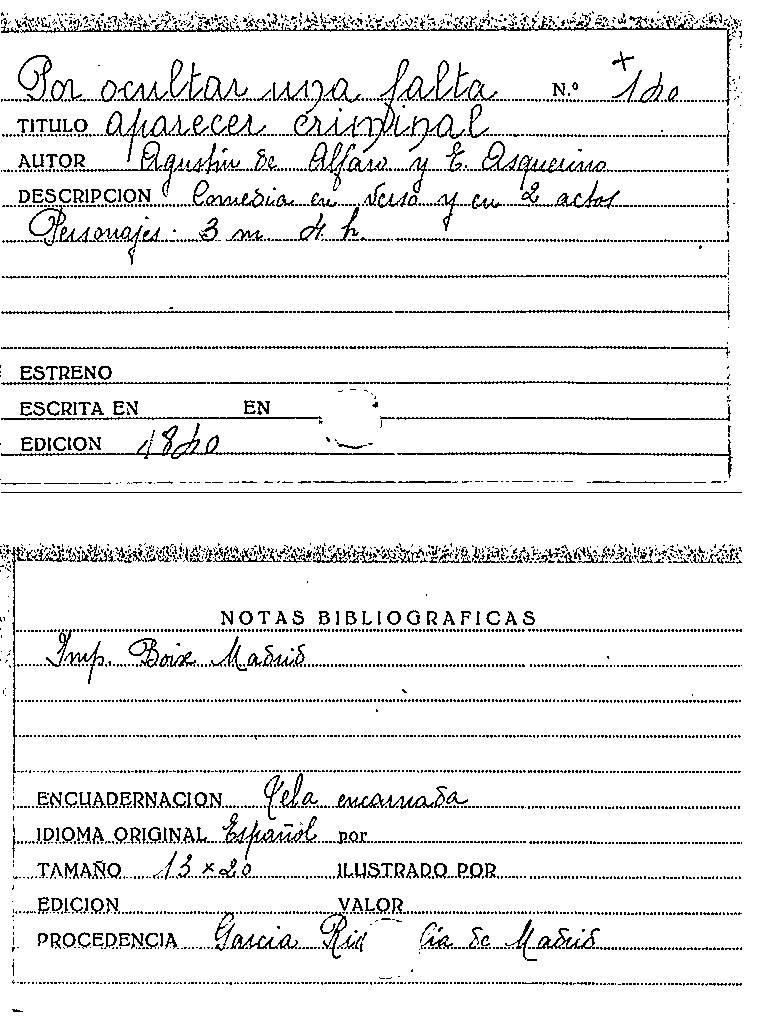 Por ocultar una falta N.º +
TITULO aparecer criminal
AUTOR Agustín de Alfaro y E. Asquerino
DESCRIPCION Comedia en verso y en 2 actos
Personajes. 3 m 4 h.
ESTRENO
ESCRITA EN EN
EDICION 1840
NOTAS BIBLIOGRAFICAS
Imp. Boix Madrid
ENCUADERNACION Tela encarnada
IDIOMA ORIGINAL Español por
TAMAÑO 13 x 20 ILUSTRADO POR
EDICION VALOR
PROCEDENCIA Garcia de Madrid